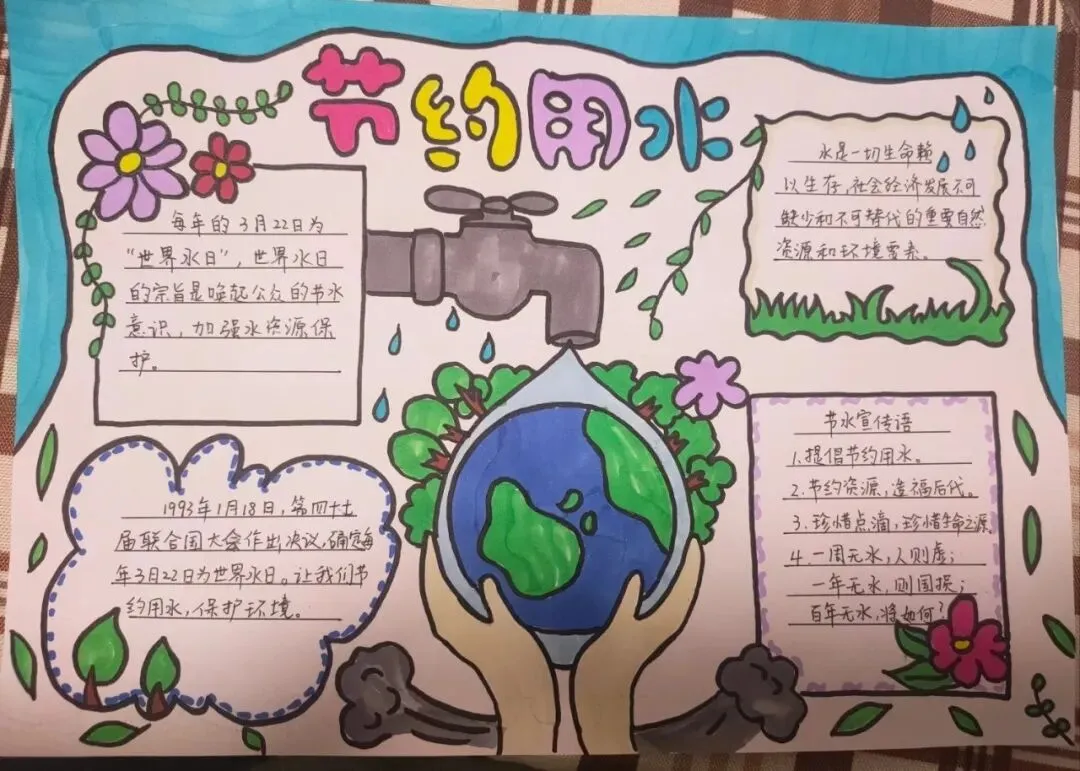 节约用水
每年的3月22日为
“世界水日”，世界水日
的宗旨是唤起公众的节水
意识，加强水资源保
护。
水是一切生命赖
以生存，社会经济发展不可
缺少和不可替代的重要自然
资源和环境要素。
1993年1月18日，第四十七
届联合国大会作出决议，确定每
年3月22日为世界水日。让我们节
约用水，保护环境。
节水宣传语
1.提倡节约用水。
2.节约资源，造福后代。
3.珍惜点滴，珍惜生命之源
4.一周无水，人则虚；
一年无水，则国损；
百年无水，将如何？